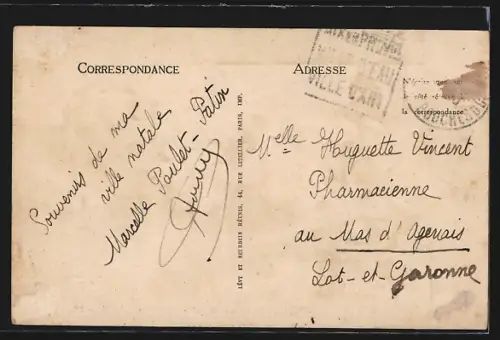 CORRESPONDANCE
Souvenirs de ma
ville natale
Marcelle Paulet-Patin
LÉVY ET NEURDEIN RÉUNIS, 44, RUE LETELLIER, PARIS, IMP.
ADRESSE
VILLE D'ART
la correspondance
Melle Huguette Vincent
Pharmacienne
au Mas d'Agenais
Lot-et-Garonne